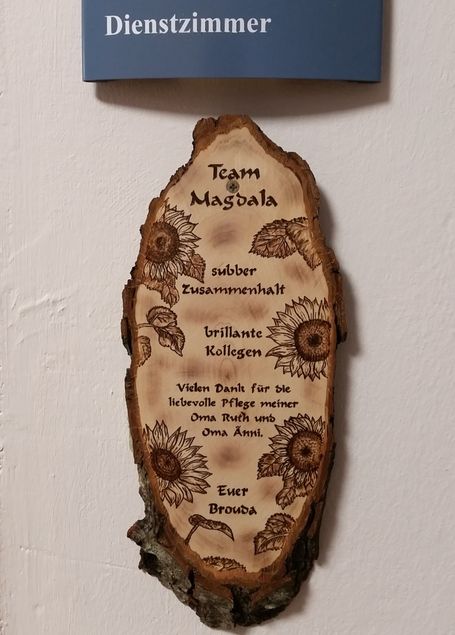 Dienstzimmer
Team
Magdala
subber
Zusammenhalt
brillante
Kollegen
Vielen Dank für die
liebevolle Pflege meiner
Oma Ruth und
Oma Änni.
Euer
Brouda